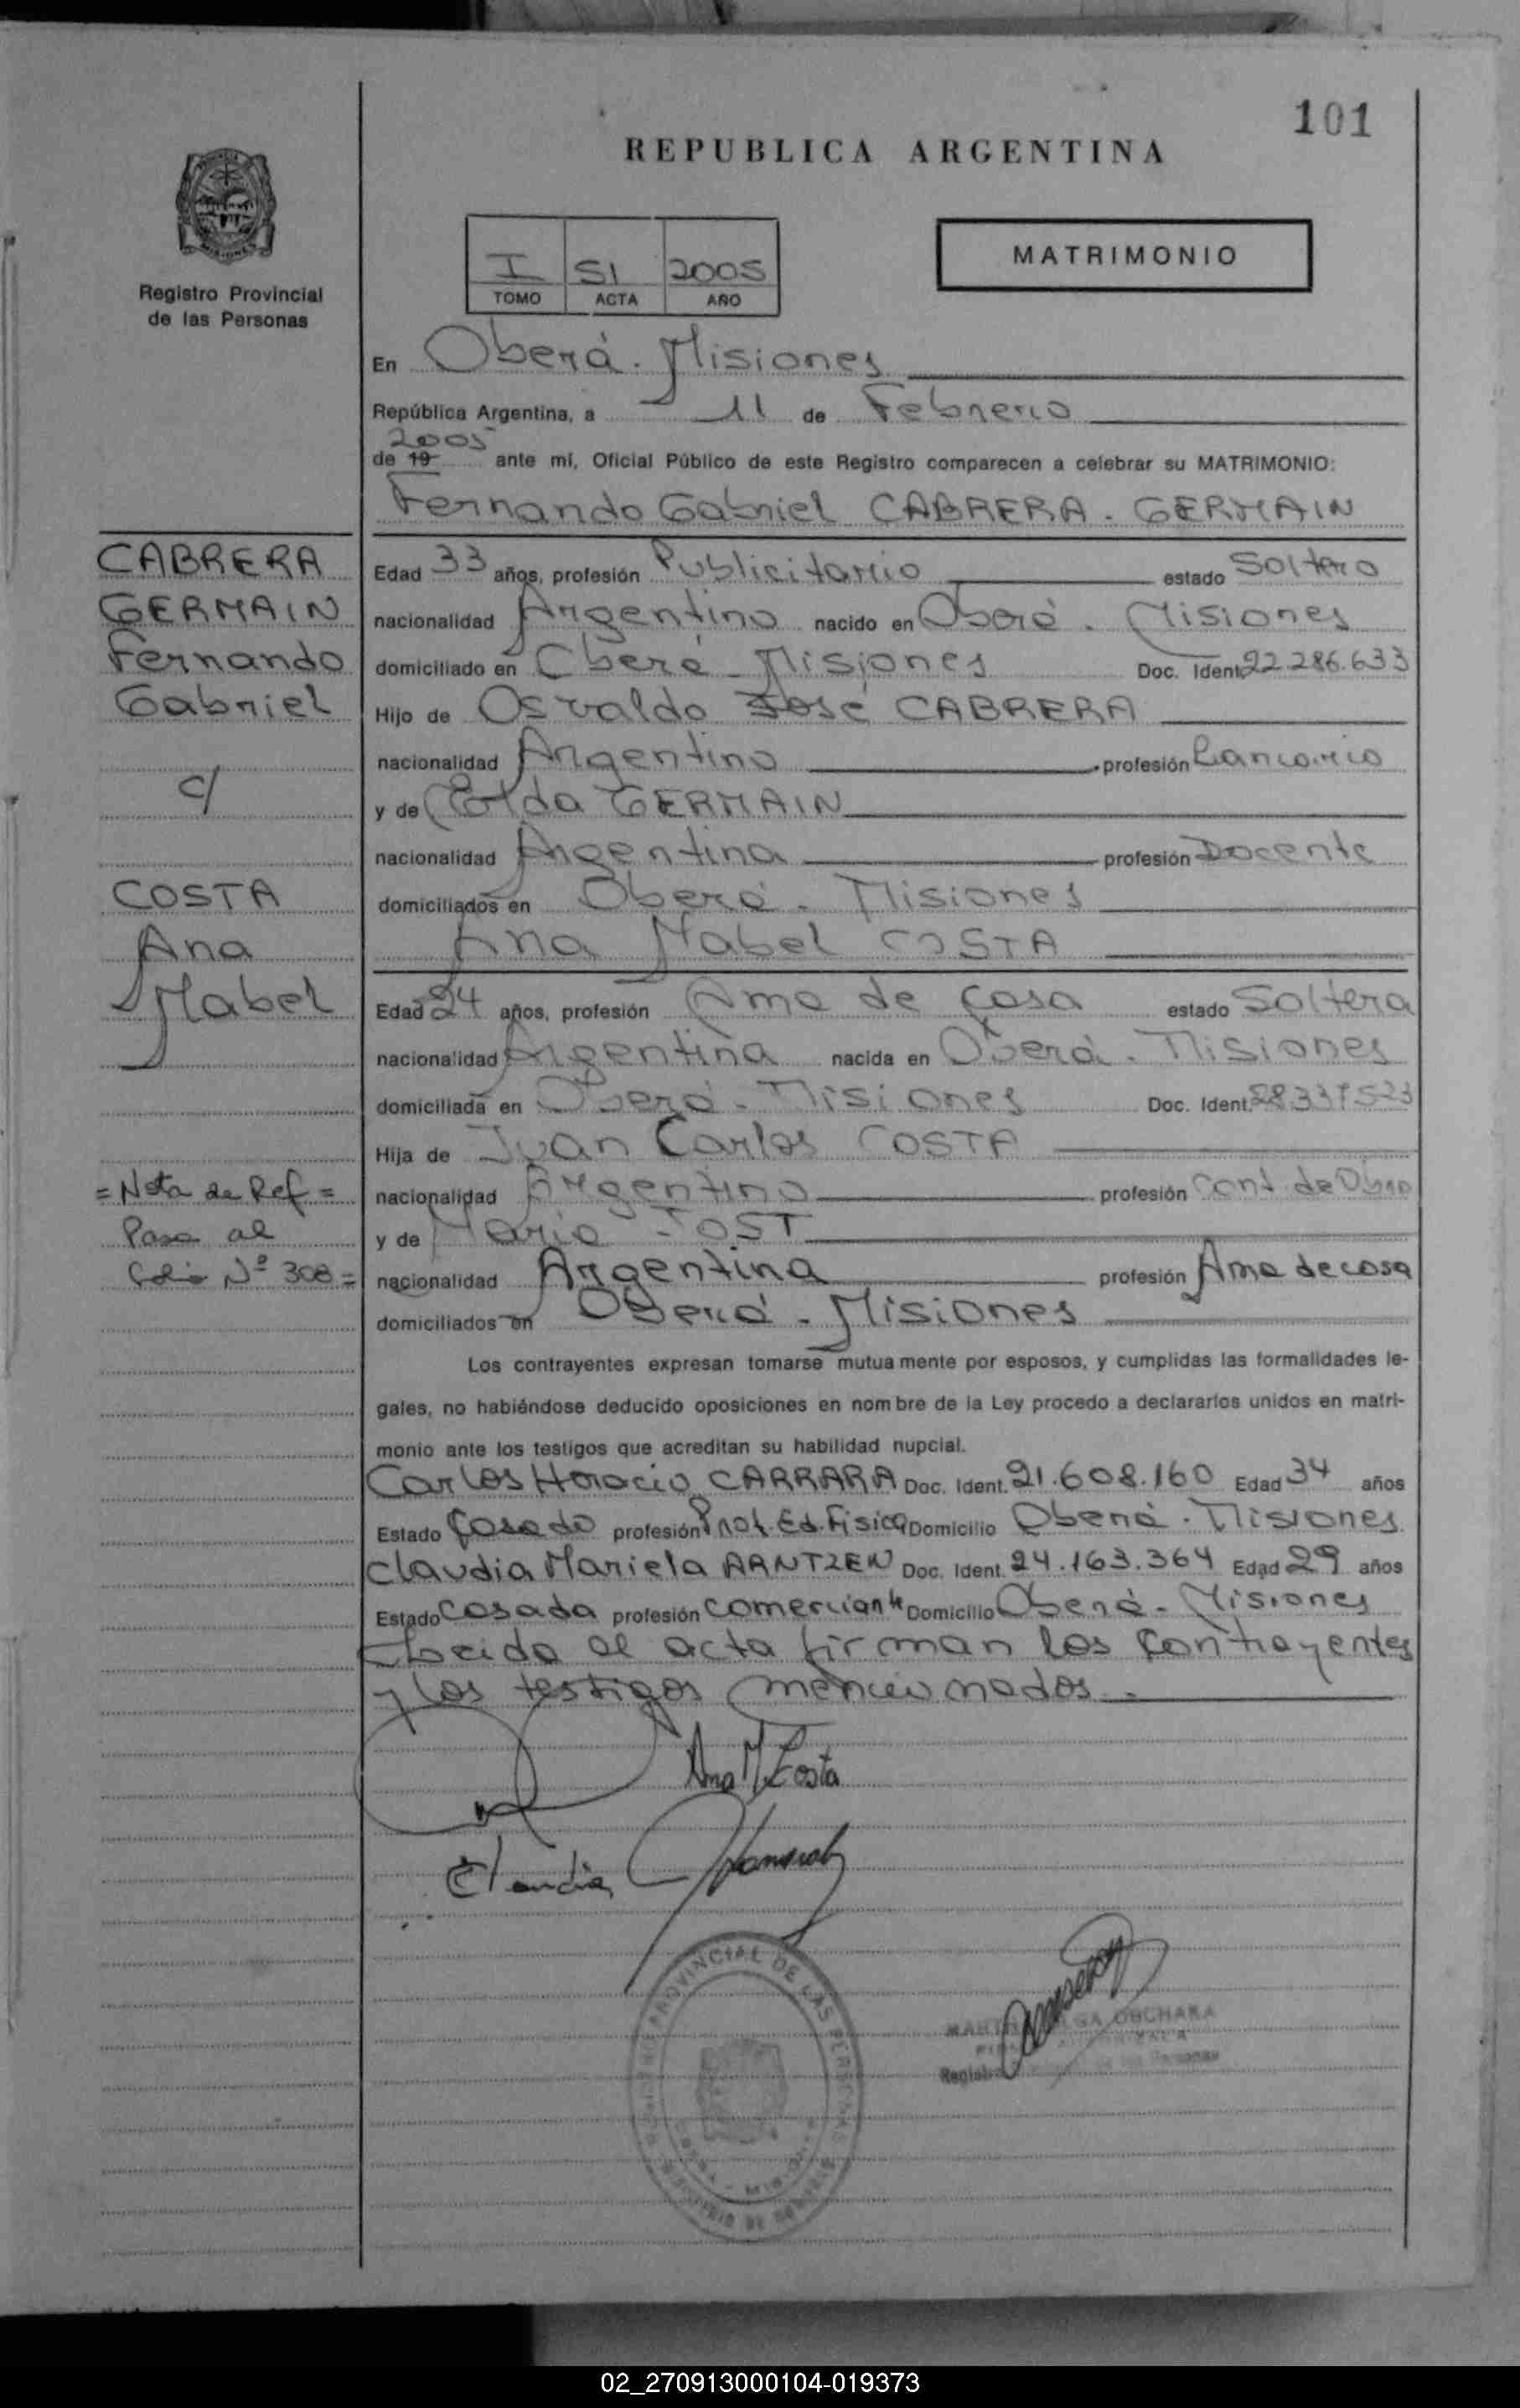 101
REPUBLICA ARGENTINA
I 51 2005
TOMO ACTA AÑO
MATRIMONIO
Registro Provincial
de las Personas
En Oberá. Misiones
República Argentina, a 11 de Febrero
2005
de 19 ante mí, Oficial Público de este Registro comparecen a celebrar su MATRIMONIO:
Fernando Gabriel CABRERA - GERMAIN
CABRERA
GERMAIN
Fernando
Gabriel
c/
COSTA
Ana
Mabel
= Nota de Ref =
Pasa al
Folio Nº 308 =
Edad 33 años, profesión Publicitario estado Soltero
nacionalidad Argentino nacido en Oberá - Misiones
domiciliado en Oberá - Misiones Doc. Ident. 22.286.633
Hijo de Osvaldo José CABRERA
nacionalidad Argentino profesión bancario
y de GERMAIN
nacionalidad Argentina profesión Docente
domiciliados en Oberá - Misiones
Ana Mabel COSTA
Edad 24 años, profesión Ama de casa estado Soltera
nacionalidad Argentina nacida en Oberá - Misiones
domiciliada en Oberá - Misiones Doc. Ident.
Hija de Juan Carlos COSTA
nacionalidad Argentino profesión Cont. de Obra
y de María - TOST
nacionalidad Argentina profesión Ama de casa
domiciliados en Oberá - Misiones
Los contrayentes expresan tomarse mutuamente por esposos, y cumplidas las formalidades le-
gales, no habiéndose deducido oposiciones en nombre de la Ley procedo a declararlos unidos en matri-
monio ante los testigos que acreditan su habilidad nupcial.
Carlos Horacio CARRARA Doc. Ident. 21.608.160 Edad 34 años
Estado Casado profesión Prof. Ed. Física Domicilio Oberá - Misiones
Claudia Mariela ARNTZEN Doc. Ident. 24.163.364 Edad 29 años
Estado Casada profesión Comerciante Domicilio Oberá - Misiones
Leída el acta firman los contrayentes
y los testigos mencionados.-
Ana M Costa
Claudia
PROVINCIAL DE LAS PERSONAS
OBCHARA
02_270913000104-019373